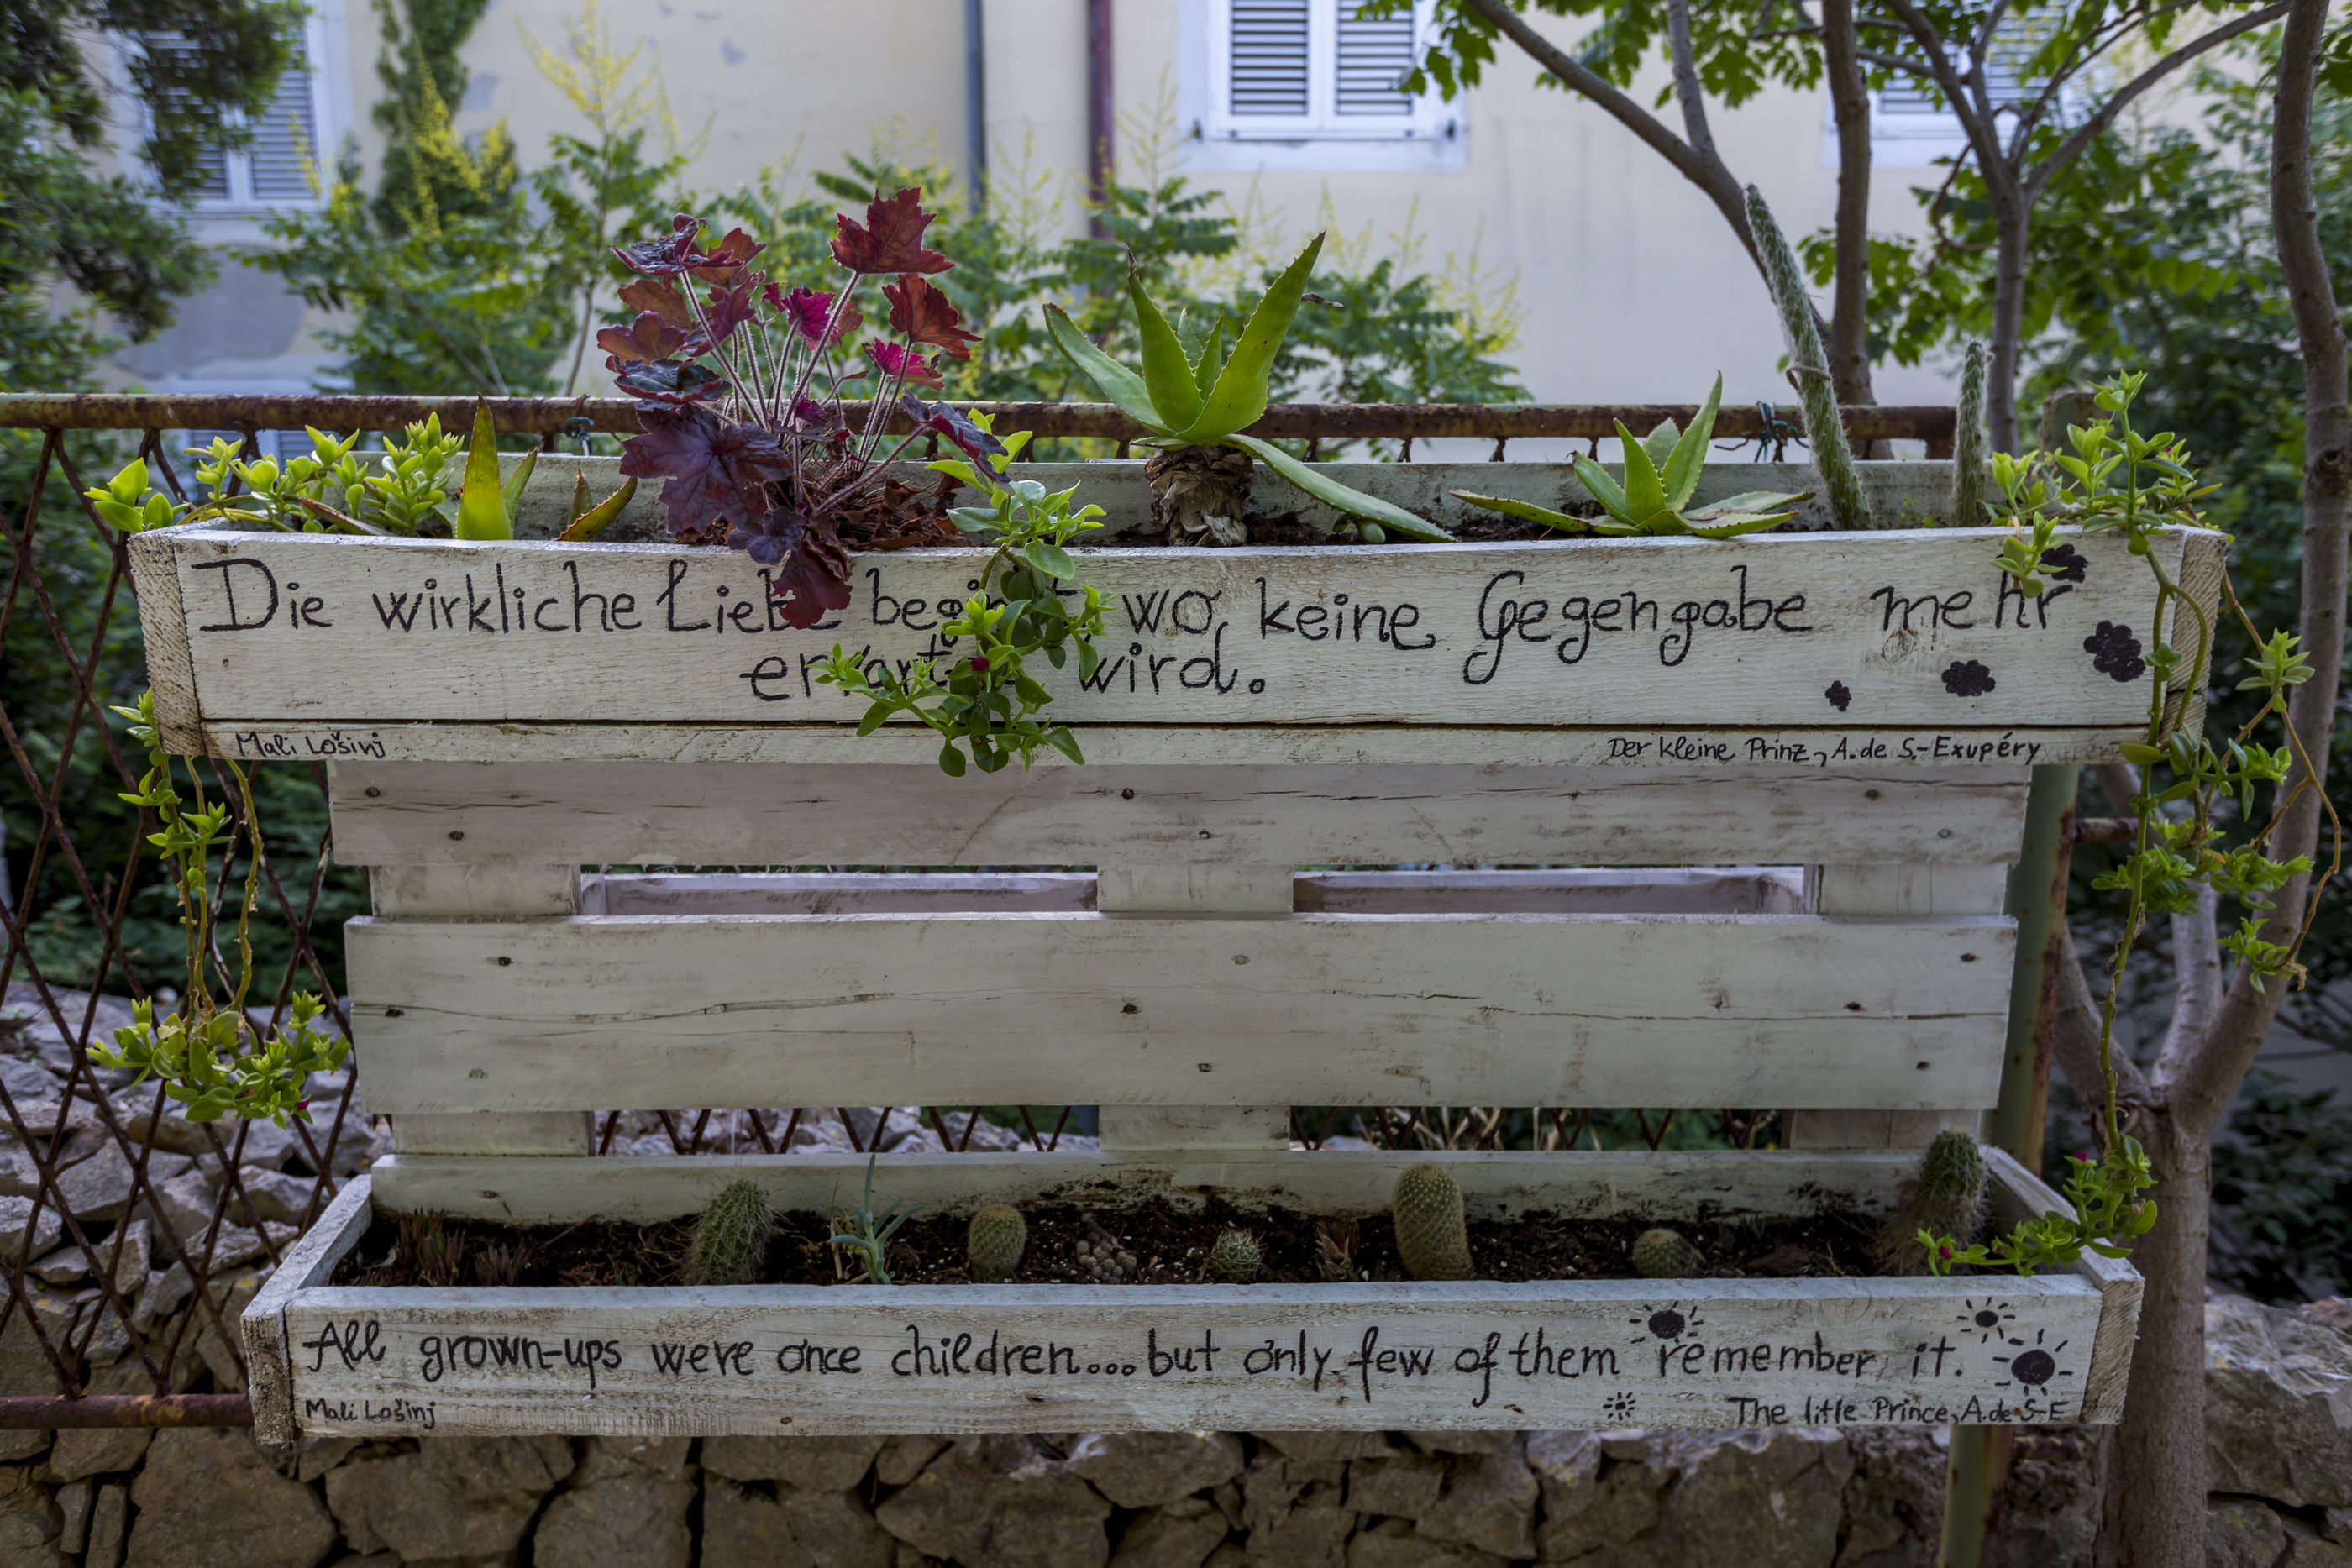 Die wirkliche Liebe beginnt wo keine Gegengabe mehr
erwartet wird.
Mali Lošinj
Der kleine Prinz, A. de S.-Exupéry
All grown-ups were once children... but only few of them remember it.
Mali Lošinj
The litle Prince, A. de S-E